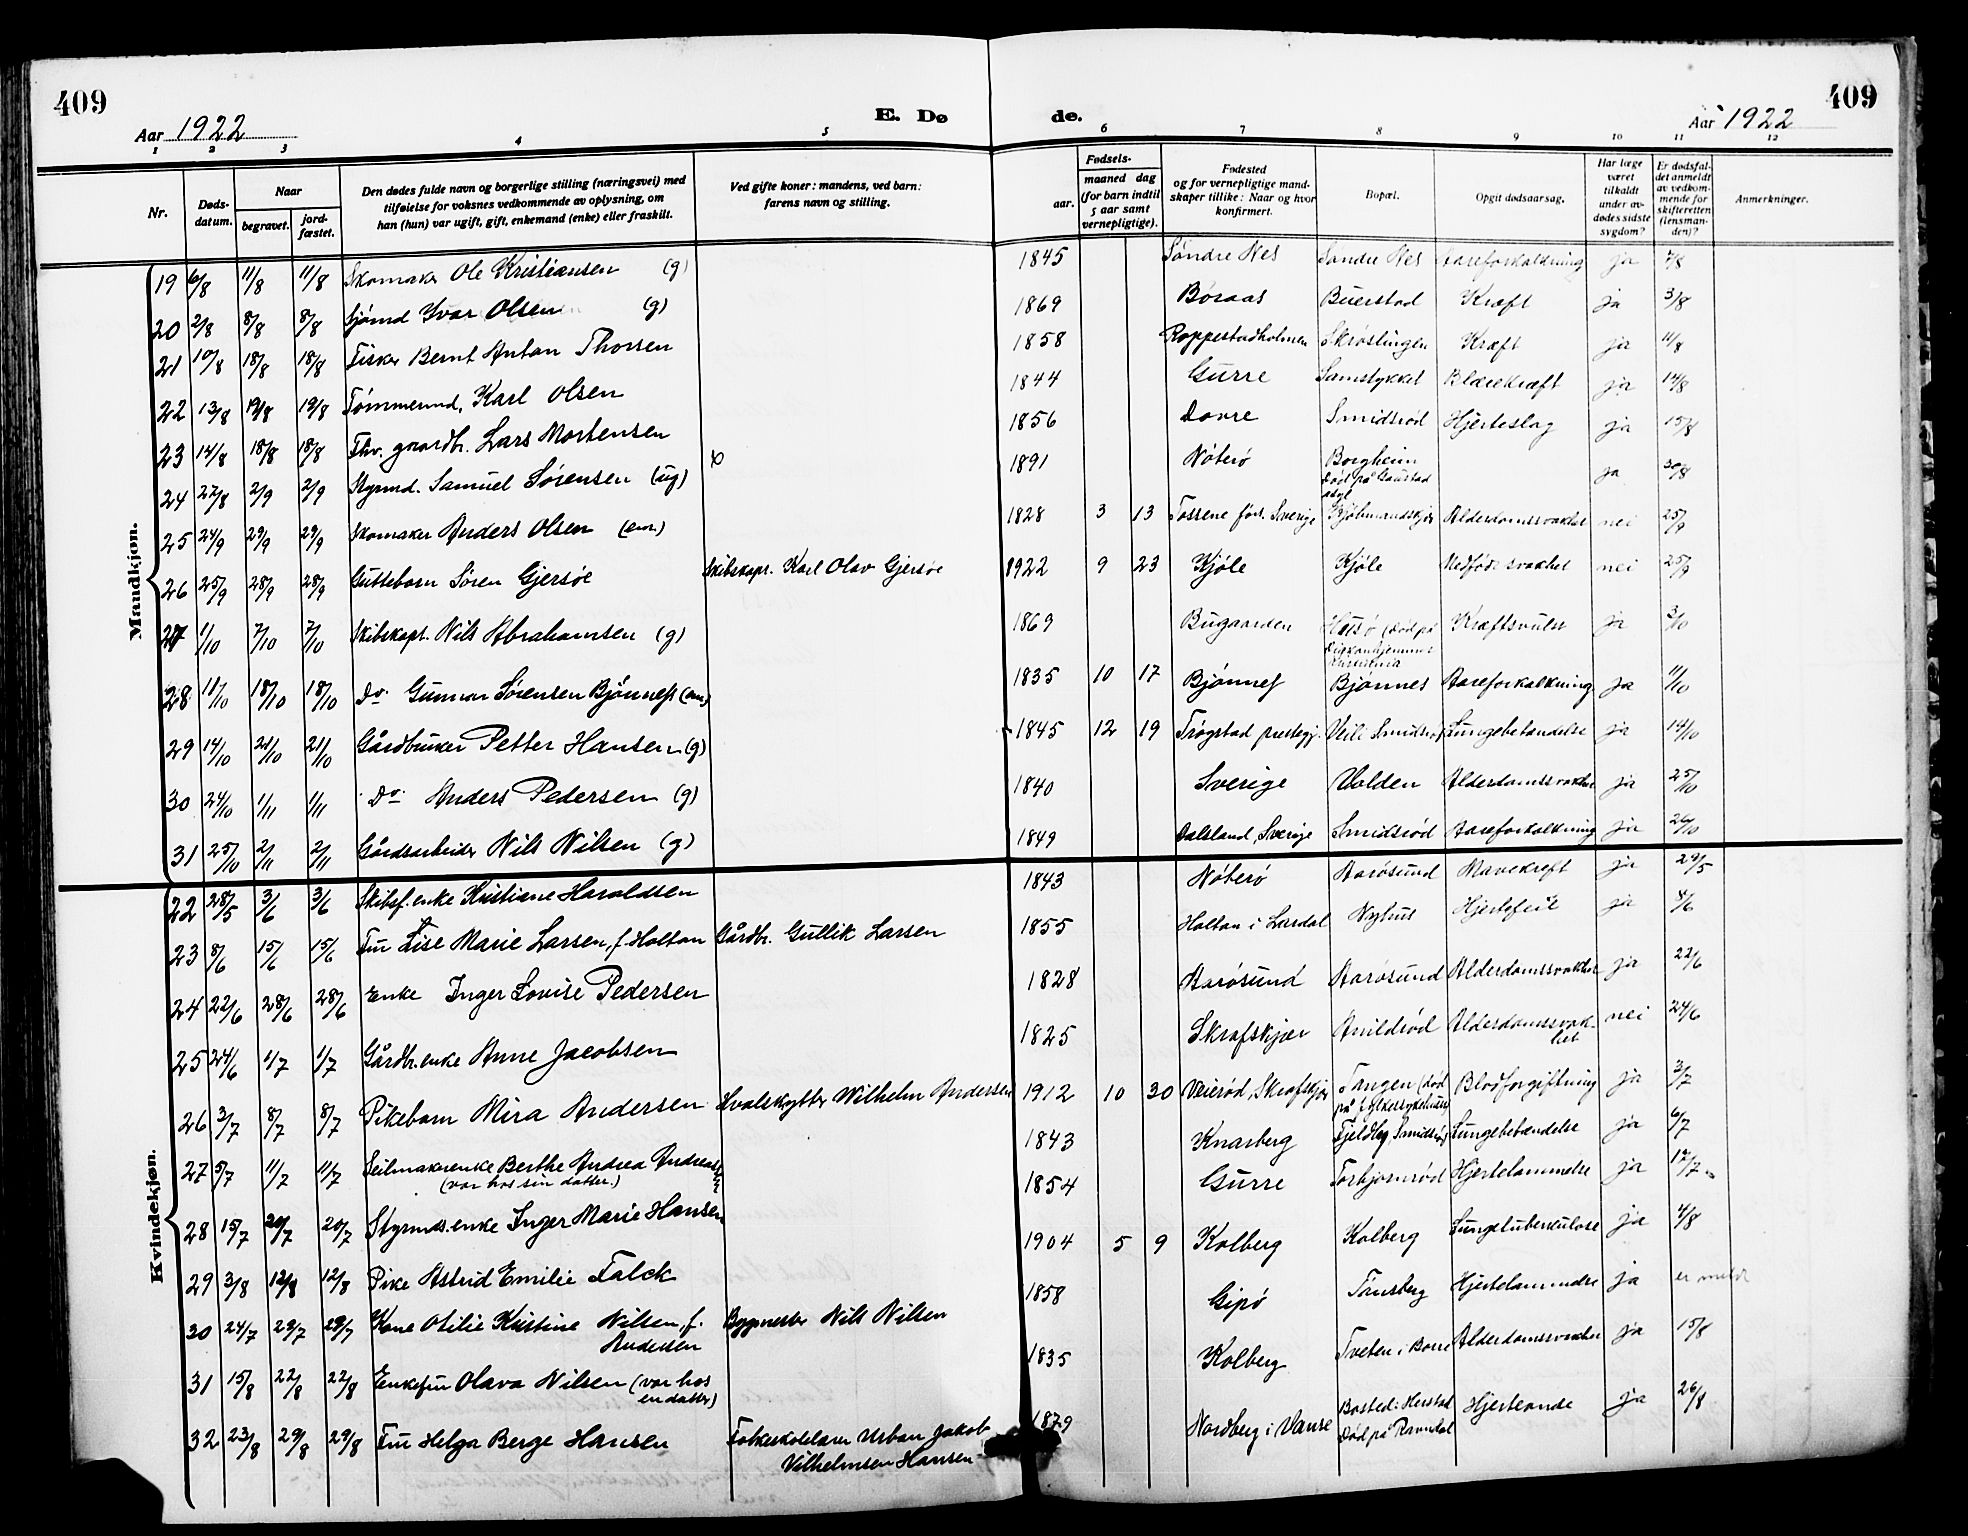 409
409
Aar 1922
E. Dø
de.
Aar 1922
1 2 3 4 5 6 7 8 9 10 11 12
Nr.
Døds-
datum.
Naar
begravet.
jord-
fæstet.
Den dødes fulde navn og borgerlige stilling (næringsvei) med
tilføielse for voksnes vedkommende av oplysning, om
han (hun) var ugift, gift, enkemand (enke) eller fraskilt.
Ved gifte koner: mandens, ved barn:
farens navn og stilling.
Fødsels-
aar.
maaned dag
(for barn indtil
5 aar samt
vernepligtige).
Fødested
og for vernepligtige mand-
skaper tillike: Naar og hvor
konfirmert.
Bopæl.
Opgit dødsaarsag.
Har læge
været
tilkaldt
under av-
dødes sidste
sygdom?
Er dødsfal-
det anmeldt
av vedkom-
mende for
skifteretten
(lensman-
den)?
Anmerkninger.
Mandkjøn.
19 6/8 11/8 11/8 Skomaker Ole Kristiansen (g) 1845 Søndre Nes Søndre Nes Aareforkalkning ja 7/8
20 2/8 8/8 8/8 Sjømd Ivar Olsen (g) 1869 Børaas Buerstad Kræft ja 3/8
21 10/8 18/8 18/8 Fisker Bernt Anton Thorsen 1858 Roppestadholmen Skrøslingen Kræft ja 11/8
22 13/8 19/8 19/8 Tømmermd. Karl Olsen 1844 Gurre Samstykket Blærekræft ja 14/8
23 14/8 18/8 18/8 Fhv. gaardbr. Lars Mortensen 1856 Dovre Smidsrød Hjerteslag ja 15/8
24 22/8 2/9 2/9 Styrmd. Samuel Sørensen (ug) 1891 Nøterø Borgheim ja 30/8
Død på Gaustad
asyl
25 24/9 29/9 29/9 Skomaker Anders Olsen (em.) 1828 3 13 Tossene førs. Sverige Kjølmandskjær Alderdomssvakhet nei 25/9
26 25/9 28/9 28/9 Guttebarn Søren Gjersøe Skibskapt. Karl Olav Gjersøe 1922 9 23 Kjøle Kjøle Medfødt svakhet nei 25/9
27 1/10 7/10 7/10 Skibskapt. Nils Abrahamsen (g) 1869 Bugaarden Husø (død på Kræftsvulst ja 3/10
Diakonhjemmet
Kristiania
28 11/10 18/10 18/10 Do. Gunnar Sørensen Bjønnes (em) 1835 10 17 Bjønnes Bjønnes Aareforkalkning ja 11/10
29 14/10 21/10 21/10 Gårdbruker Petter Hansen (g) 1845 12 19 Trøgstad prestegj. Smidsrød Lungebetændelse ja 14/10
30 24/10 1/11 1/11 Do. Anders Pedersen (g) 1840 Sverige Volden Alderdomssvakhet ja 25/10
31 25/10 2/11 2/11 Gårdsarbeider Nils Nilsen (g) 1849 Dalsland, Sverige Smidsrød Aareforkalkning ja 26/10
Kvindekjøn.
22 28/5 3/6 3/6 Skibsf. enke Kristiane Haraldsen 1843 Nøterø Aarøsund Mavekræft ja 29/5
23 8/6 15/6 15/6 Fru Lise Marie Larsen, f. Holtan Gårdbr. Gullik Larsen 1855 Holtan i Lardal Nyhus Hjertefeil ja
24 22/6 28/6 28/6 Enke Inger Lovise Pedersen 1828 Aarøsund Aarøsund Alderdomssvakhet ja 22/6
25 24/6 1/7 1/7 Gårdbr. enke Anne Jacobsen 1825 Skrafskjær Arildsrød Alderdomssvak- nei 24/6
het
26 3/7 8/7 8/7 Pikebarn Mira Andersen Hvalskytter Wilhelm Andersen 1912 10 30 Veierød, Skrafskjær Tangen (død Blodforgiftning ja 3/7
på fylkessykehuset
27 5/7 11/7 11/7 Seilmakerenke Berthe Andrea 1843 Knarberg Fjeldbg, Smidsrød Lungebetændelse ja 6/7
(var hos sin datter.)
28 15/7 20/7 20/7 Styrmds. enke Inger Marie Hansen 1854 Gurre Torbjørnrød Hjertelammelse ja 17/7
29 3/8 12/8 12/8 Pike Astrid Emilie Falck 1904 5 9 Kolberg Kolberg Lungetuberkulose ja 4/8
30 24/7 29/7 29/7 Kone Otilie Kristine Nilsen, f. Bygmester Nils Nilsen 1858 Gipø Tønsberg Hjertelammelse ja er meldt
Andersen
31 15/8 22/8 22/8 Enkefru Olava Nilsen (var hos 1835 Kolberg Tveten i Borre Alderdomssvakhet ja 15/8
en datter)
32 23/8 29/8 29/8 Fru Helga Berge Hansen Folkeskolelærer Urban Jakob 1879 Nordberg i Vanse Bosted: Herstad Hjerteonde ja 26/8
Vilhelmsen Hansen Død på Ravndal